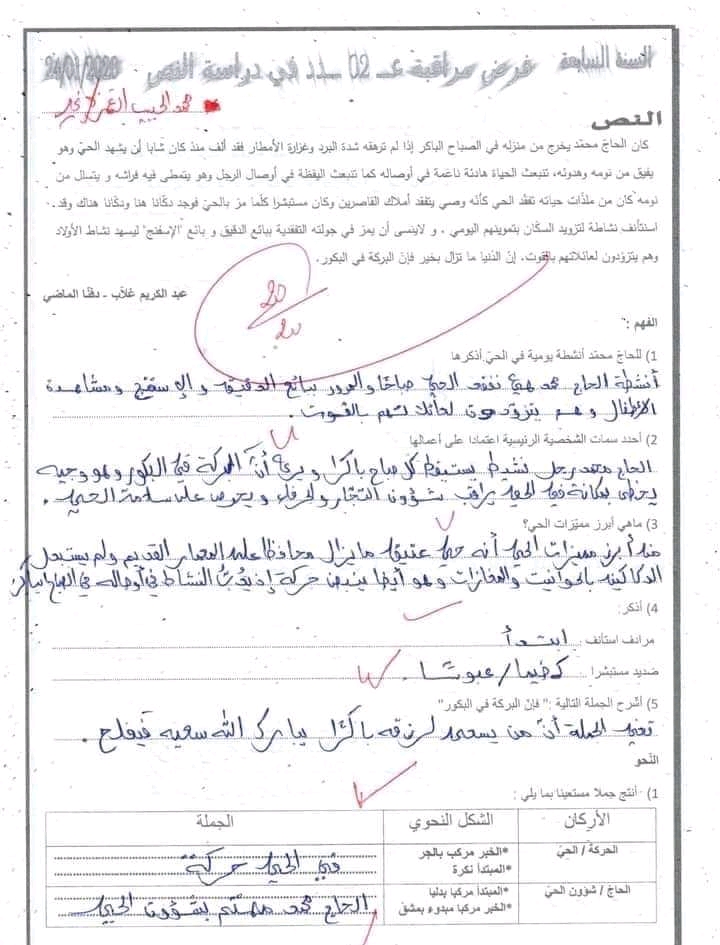 السنة السابعة فرض مراقبة عـــ 02 ـــدد في دراسة النص 24/01/2020
محمد الحبيب
النص
كان الحاجّ محمّد يخرج من منزله في الصباح الباكر إذا لم ترهقه شدة البرد وغزارة الأمطار فقد ألف منذ كان شابا أن يشهد الحيّ وهو
يفيق من نومه وهدوئه، تنبعث الحياة هادئة ناعمة في أوصاله كما تنبعث اليقظة في أوصال الرجل وهو يتمطى فيه فراشه و يتسال من
نومه كان من ملذّات حياته تفقّد الحي كأنّه وصي يتفقد أملاك القاصرين وكان مستبشرا كلّما مرّ بالحيّ فوجد دكّانا هنا ودكّانا هناك وقد
استأنف نشاطة لتزويد السكّان بتموينهم اليومي . و لاينسى أن يمرّ في جولته التفقدية ببائع الدقيق و بائع "الإسفنج" ليسهد نشاط الأولاد
وهم يتزوّدون لعائلاتهم بالقوت. إنّ الدّنيا ما تزال بخير فإنّ البركة في البكور.
عبد الكريم غلاب - دفنّا الماضي
20/20
الفهم :
1) للحاجّ محمّد أنشطة يومية في الحيّ أذكرها
أنشطة الحاج محمد هي تفقد الحي صباحًا والمرور ببائع الدقيق و الإسفنج ومشاهدة
الأطفال وهم يتزوّدون لعائلاتهم بالقوت.
2) أحدد سمات الشخصية الرئيسية اعتمادا على أعمالها
الحاج محمد رجل نشيط يستيقظ كل صباح باكرا ويرى أنّ البركة في البكور وهو وجيه
يحظى بمكانة في الحي يراقب شؤون التجّار والحرفاء ويحرص على سلامة الحي.
3) ماهي أبرز مميّزات الحي؟
من أبرز مميزات الحي أنه حي عتيق ما يزال محافظا على المعمار القديم ولم يستبدل
الدكاكين بالحوانيت والمغازات وهو أيضا ينبض حركة إذ يدبّ النشاط في أوصاله في الصباح باكرا
4) أذكر:
مرادف استأنف : ابتدأ
ضديد مستبشرا : / عبوسًا .
5) أشرح الجملة التالية :" فإنّ البركة في البكور"
تعني الجملة أنّ من يسعى لرزقه باكرًا يبارك الله سعيه فيفلح .
النّحو
1) أنتج جملا مستعينا بما يلي :
الأركان الشكل النحوي الجملة
الحركة / الحيّ *الخبر مركب بالجر *المبتدأ نكرة في الحي حركة
الحاجّ / شؤون الحيّ *المبتدأ مركبا بدليا *الخبر مركبا مبدوء بمشق الحاج محمد مهتم بشؤون الحي